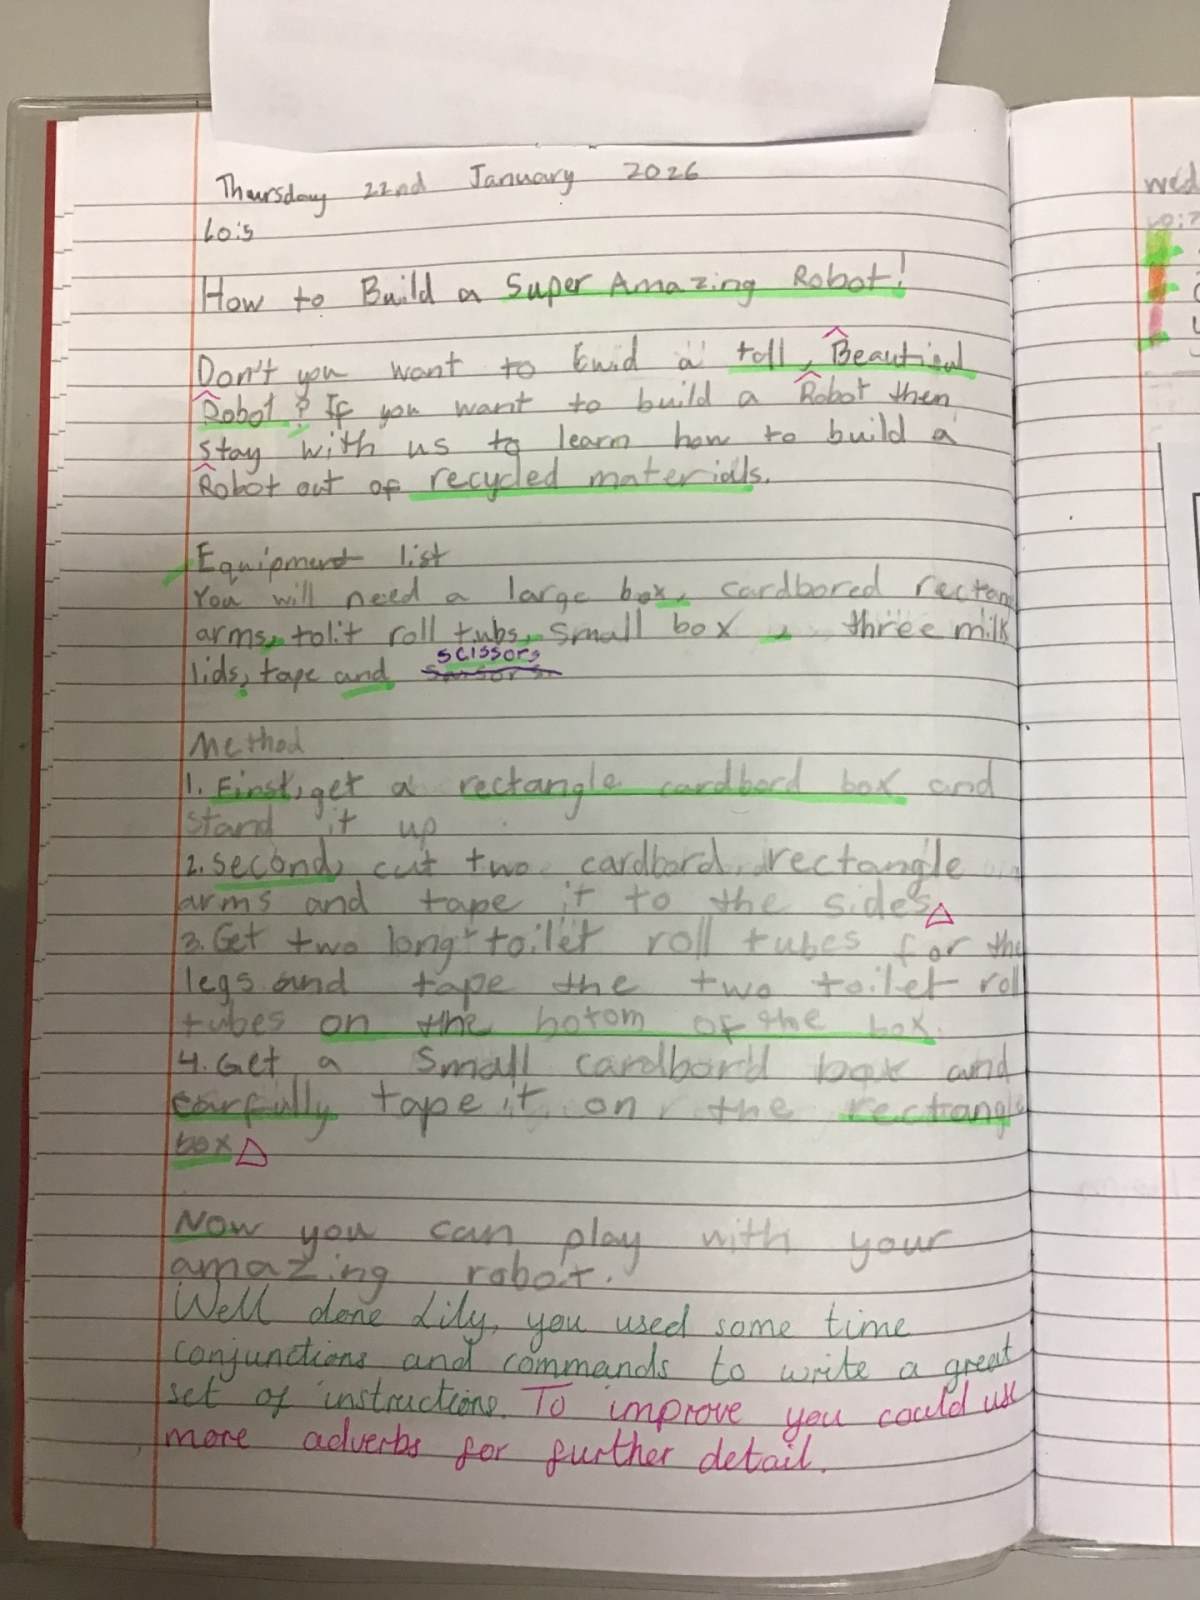 Thursday 22nd January 2026
Lo:s
How to Build a Super Amazing Robot!
Don't you want to a tall, Beautiful
Robot? If you want to build a Robot then
stay with us to learn how to build a
Robot out of recycled materials.
Equipment list
You will need a large box, cardbored rectan
arms, tolit roll tubs, small box, three milk
lids, tape and scissors
Method
1. First, get a rectangle cardbord box and
stand it up
2. second, cut two cardbord, rectangle
arms and tape it to the sides
3. Get two long toilet roll tubes for the
legs and tape the two toilet roll
tubes on the botom of the box.
4. Get a small cardbord box and
carfully tape it on the rectangle
box
Now you can play with your
amazing robot.
Well done Lily, you used some time
conjunctions and commands to write a great
set of instructions. To improve you could use
more adverbs for further detail.
wed